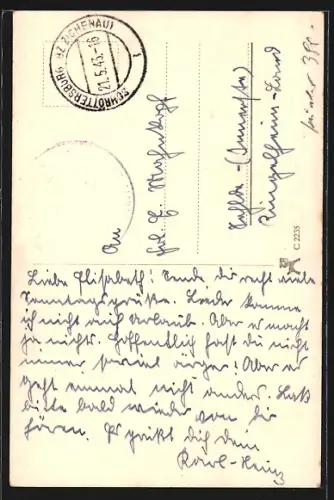 SCHRÖTTERSBURG (BZ ZICHENAU)
21.5.43.-16
An
Frl. E.
Sehlde - (Innerste)
Ringelheim-Land
C 2235
Liebe Elisabeth! Sende dir recht viele
Sonntagsgrüße. Leider komme
ich nicht auf Urlaub. Aber es macht
ja nichts. Hoffentlich hast du nicht
immer soviel Ärger! Aber es
geht einmal nicht anders. Laß
bitte bald wieder von dir
hören. Es grüßt dich dein
Karl-Heinz